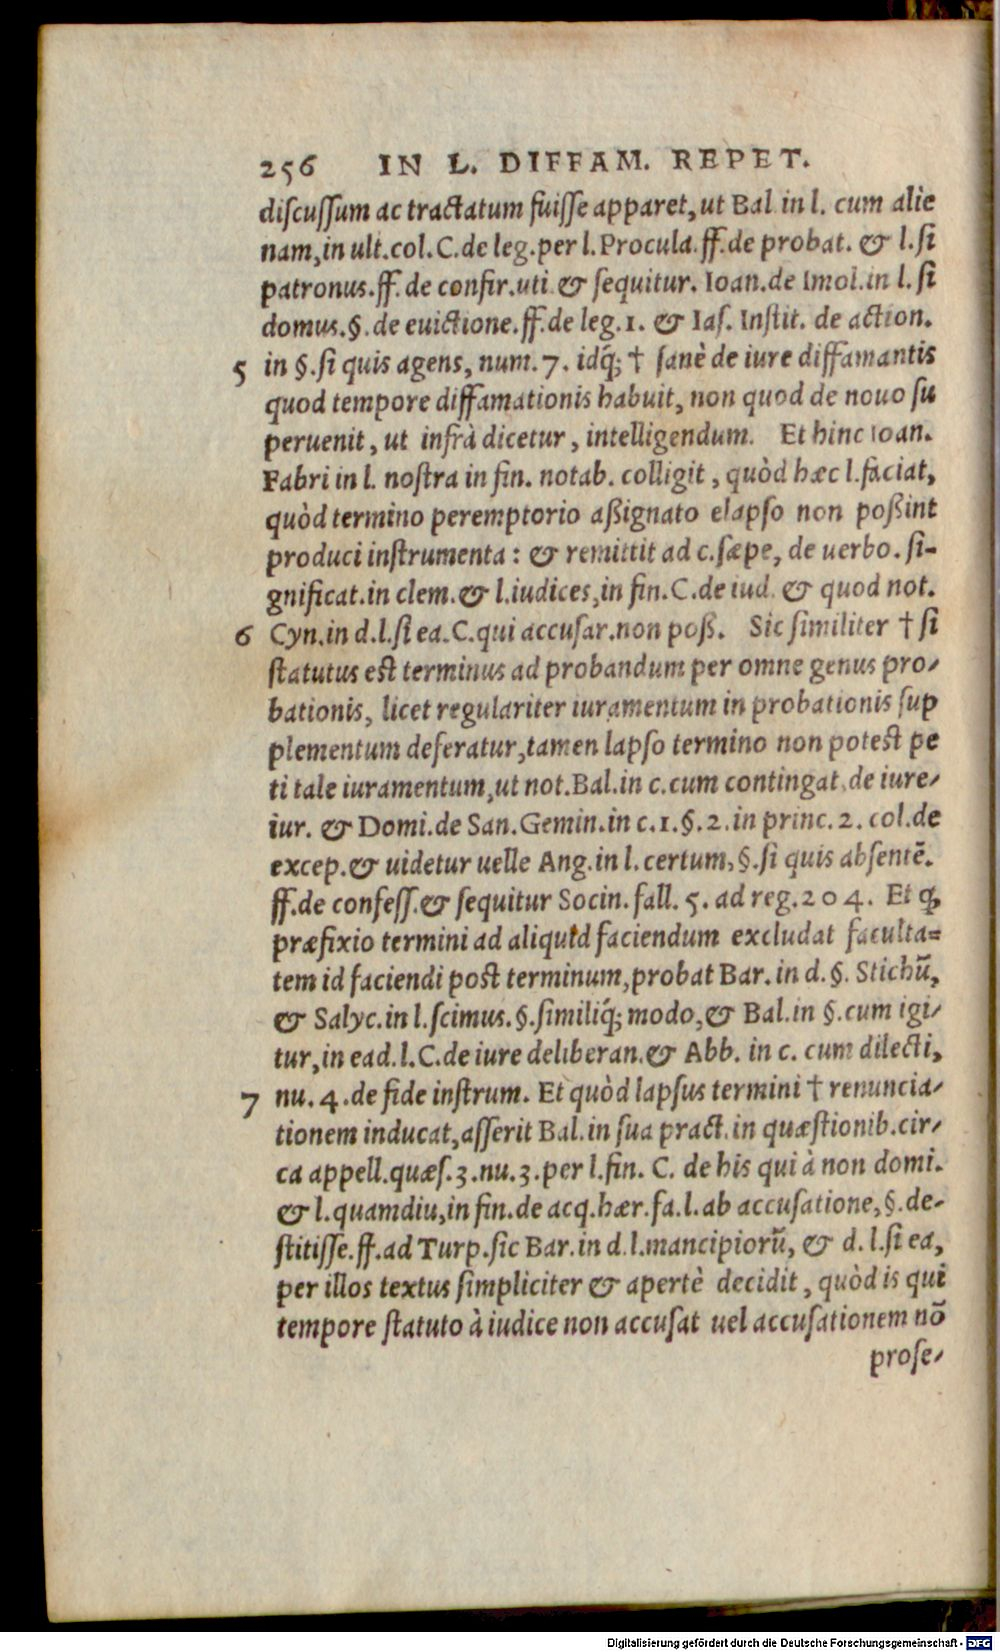 256 IN L. DIFFAM. REPET.
discussum ac tractatum fuisse apparet, ut Bal in l. cum alie
nam, in ult. col. C. de leg. per l. Procula. ff. de probat. & l. si
patronus. ff. de confir. uti & sequitur. Ioan. de Imol. in l. si
domus. §. de euictione. ff. de leg. 1. & Ias. Instit. de action.
5 in §. si quis agens, num. 7. idq́; † sanè de iure diffamantis
quod tempore diffamationis habuit, non quod de nouo su
peruenit, ut infrà dicetur, intelligendum. Et hinc Ioan.
Fabri in l. nostra in fin. notab. colligit, quòd hæc l. faciat,
quòd termino peremptorio aßignato elapso non poßint
produci instrumenta: & remittit ad c. sæpe, de uerbo. si-
gnificat. in clem. & l. iudices, in fin. C. de iud. & quod not.
6 Cyn. in d. l. si ea. C. qui accusar. non poß. Sic similiter † si
statutus est terminus ad probandum per omne genus pro-
bationis, licet regulariter iuramentum in probationis sup
plementum deferatur, tamen lapso termino non potest pe
ti tale iuramentum, ut not. Bal. in c. cum contingat, de iure-
iur. & Domi. de San. Gemin. in c. 1. §. 2. in princ. 2. col. de
excep. & uidetur uelle Ang. in l. certum, §. si quis absentē.
ff. de confess. & sequitur Socin. fall. 5. ad reg. 204. Et ꝙ
præfixio termini ad aliquid faciendum excludat faculta=
tem id faciendi post terminum, probat Bar. in d. §. Stichū,
& Salyc. in l. scimus. §. similiq́; modo, & Bal. in §. cum igi-
tur, in ead. l. C. de iure deliberan. & Abb. in c. cum dilecti,
7 nu. 4. de fide instrum. Et quòd lapsus termini † renuncia-
tionem inducat, asserit Bal. in sua pract. in quæstionib. cir-
ca appell. quæs. 3. nu. 3. per l. fin. C. de his qui à non domi.
& l. quamdiu, in fin. de acq. hær. fa. l. ab accusatione, §. de-
stitisse. ff. ad Turp. sic Bar. in d. l. mancipiorū, & d. l. si ea,
per illos textus simpliciter & apertè decidit, quòd is qui
tempore statuto à iudice non accusat uel accusationem nō
prose-
Digitalisierung gefördert durch die Deutsche Forschungsgemeinschaft - DFG